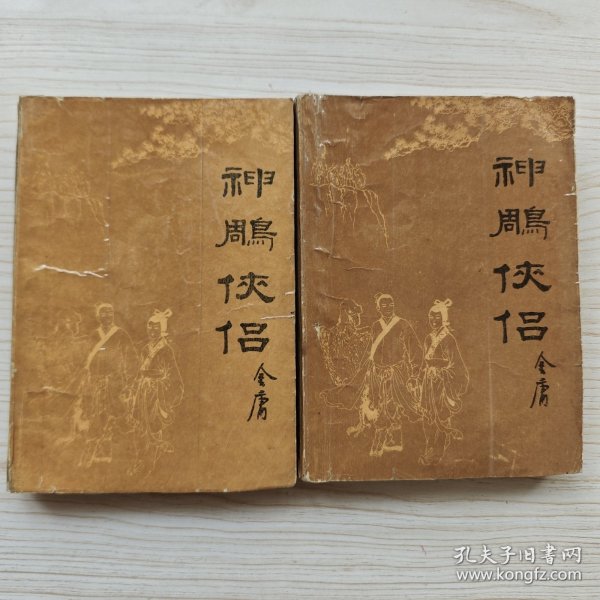 神鵰俠侣
金庸
神鵰俠侣
金庸
孔夫子旧書网
www.kongfz.com